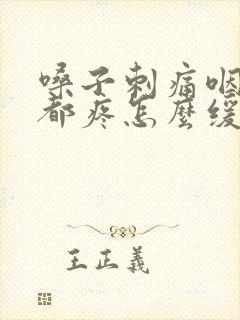 嗓子刺痛咽
都疼怎麼緩
王正義